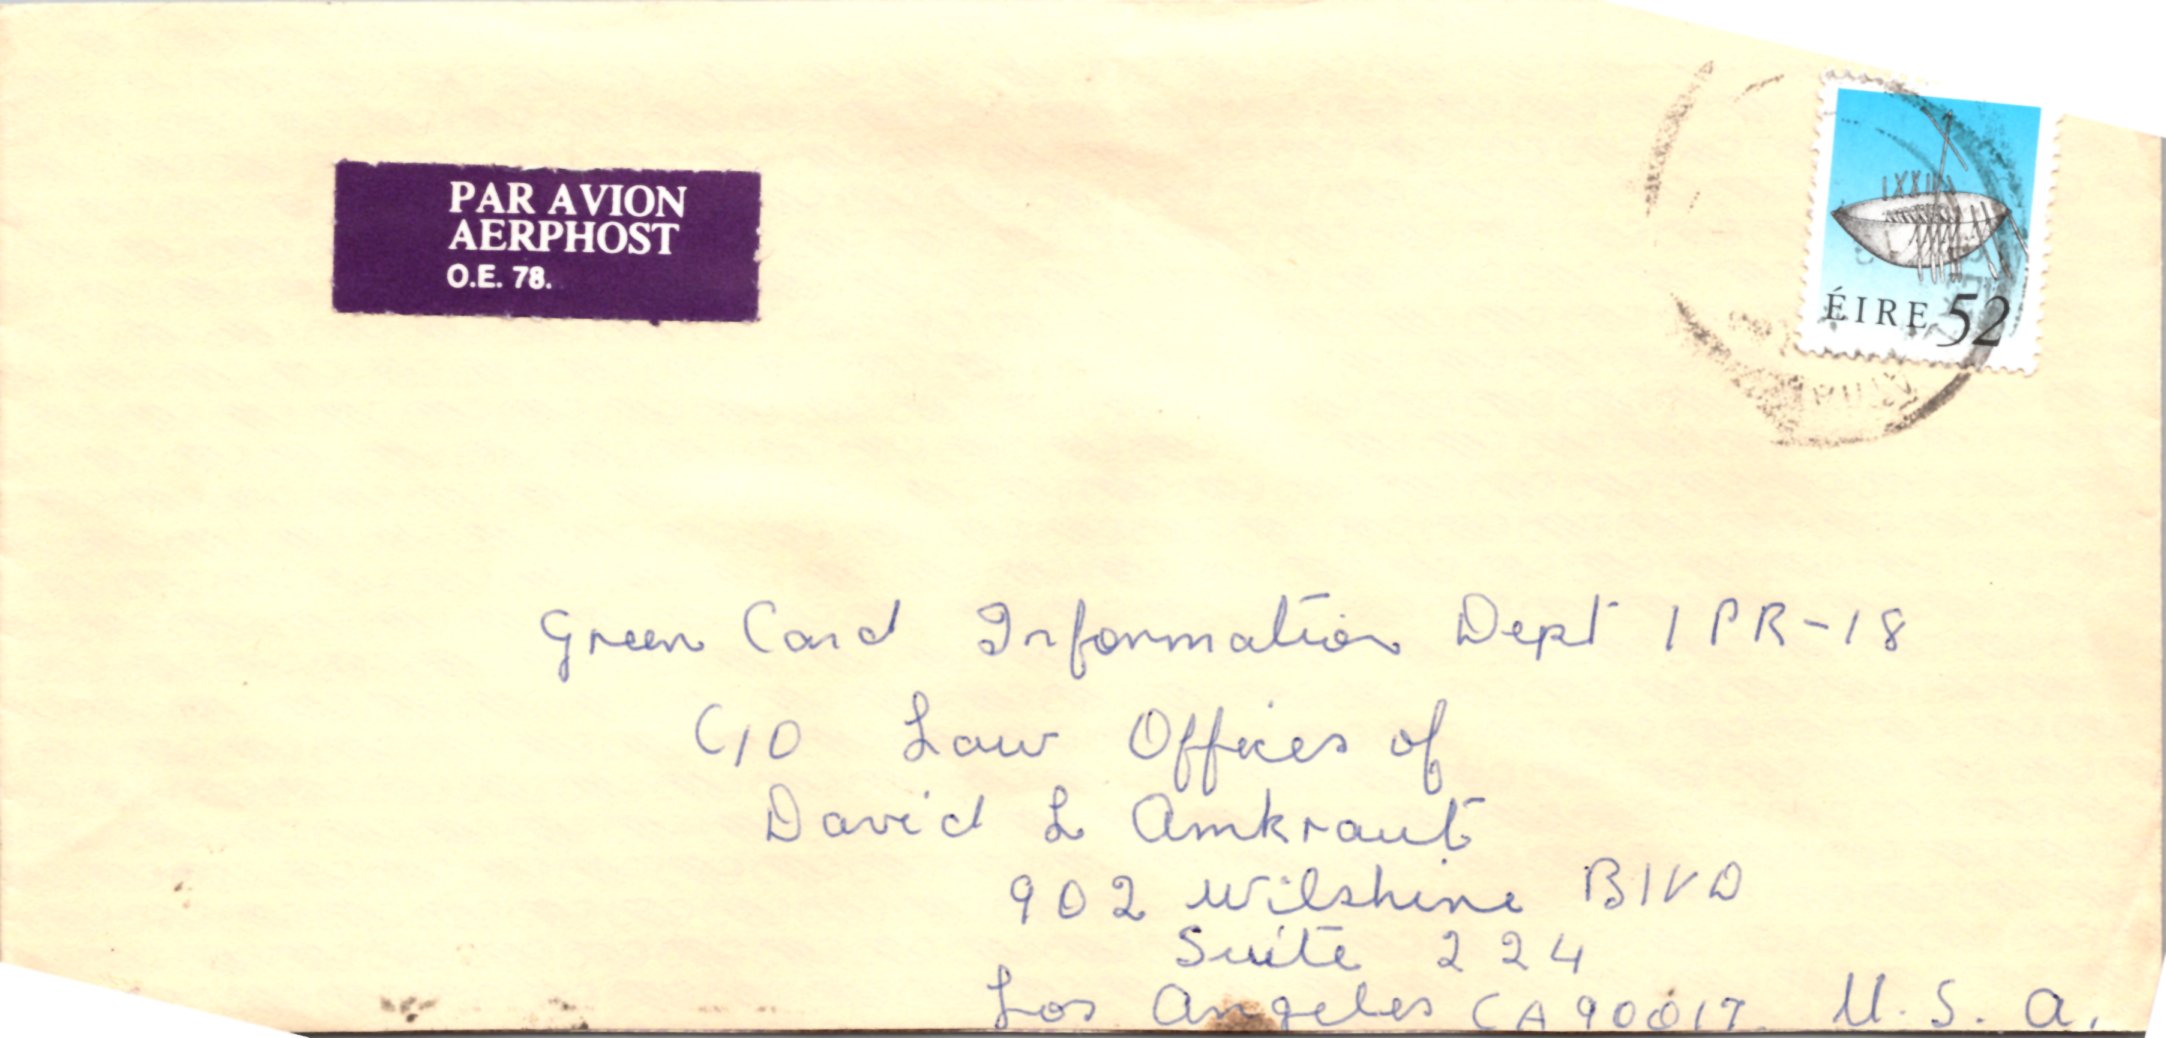 PAR AVION
AERPHOST
O.E. 78.
ÉIRE 52
Green Card Information Dept IPR-18
C/O Law Offices of
David L Amkraut
902 Wilshire BlVD
Suite 224
Los Angeles CA 90017 U.S.A.